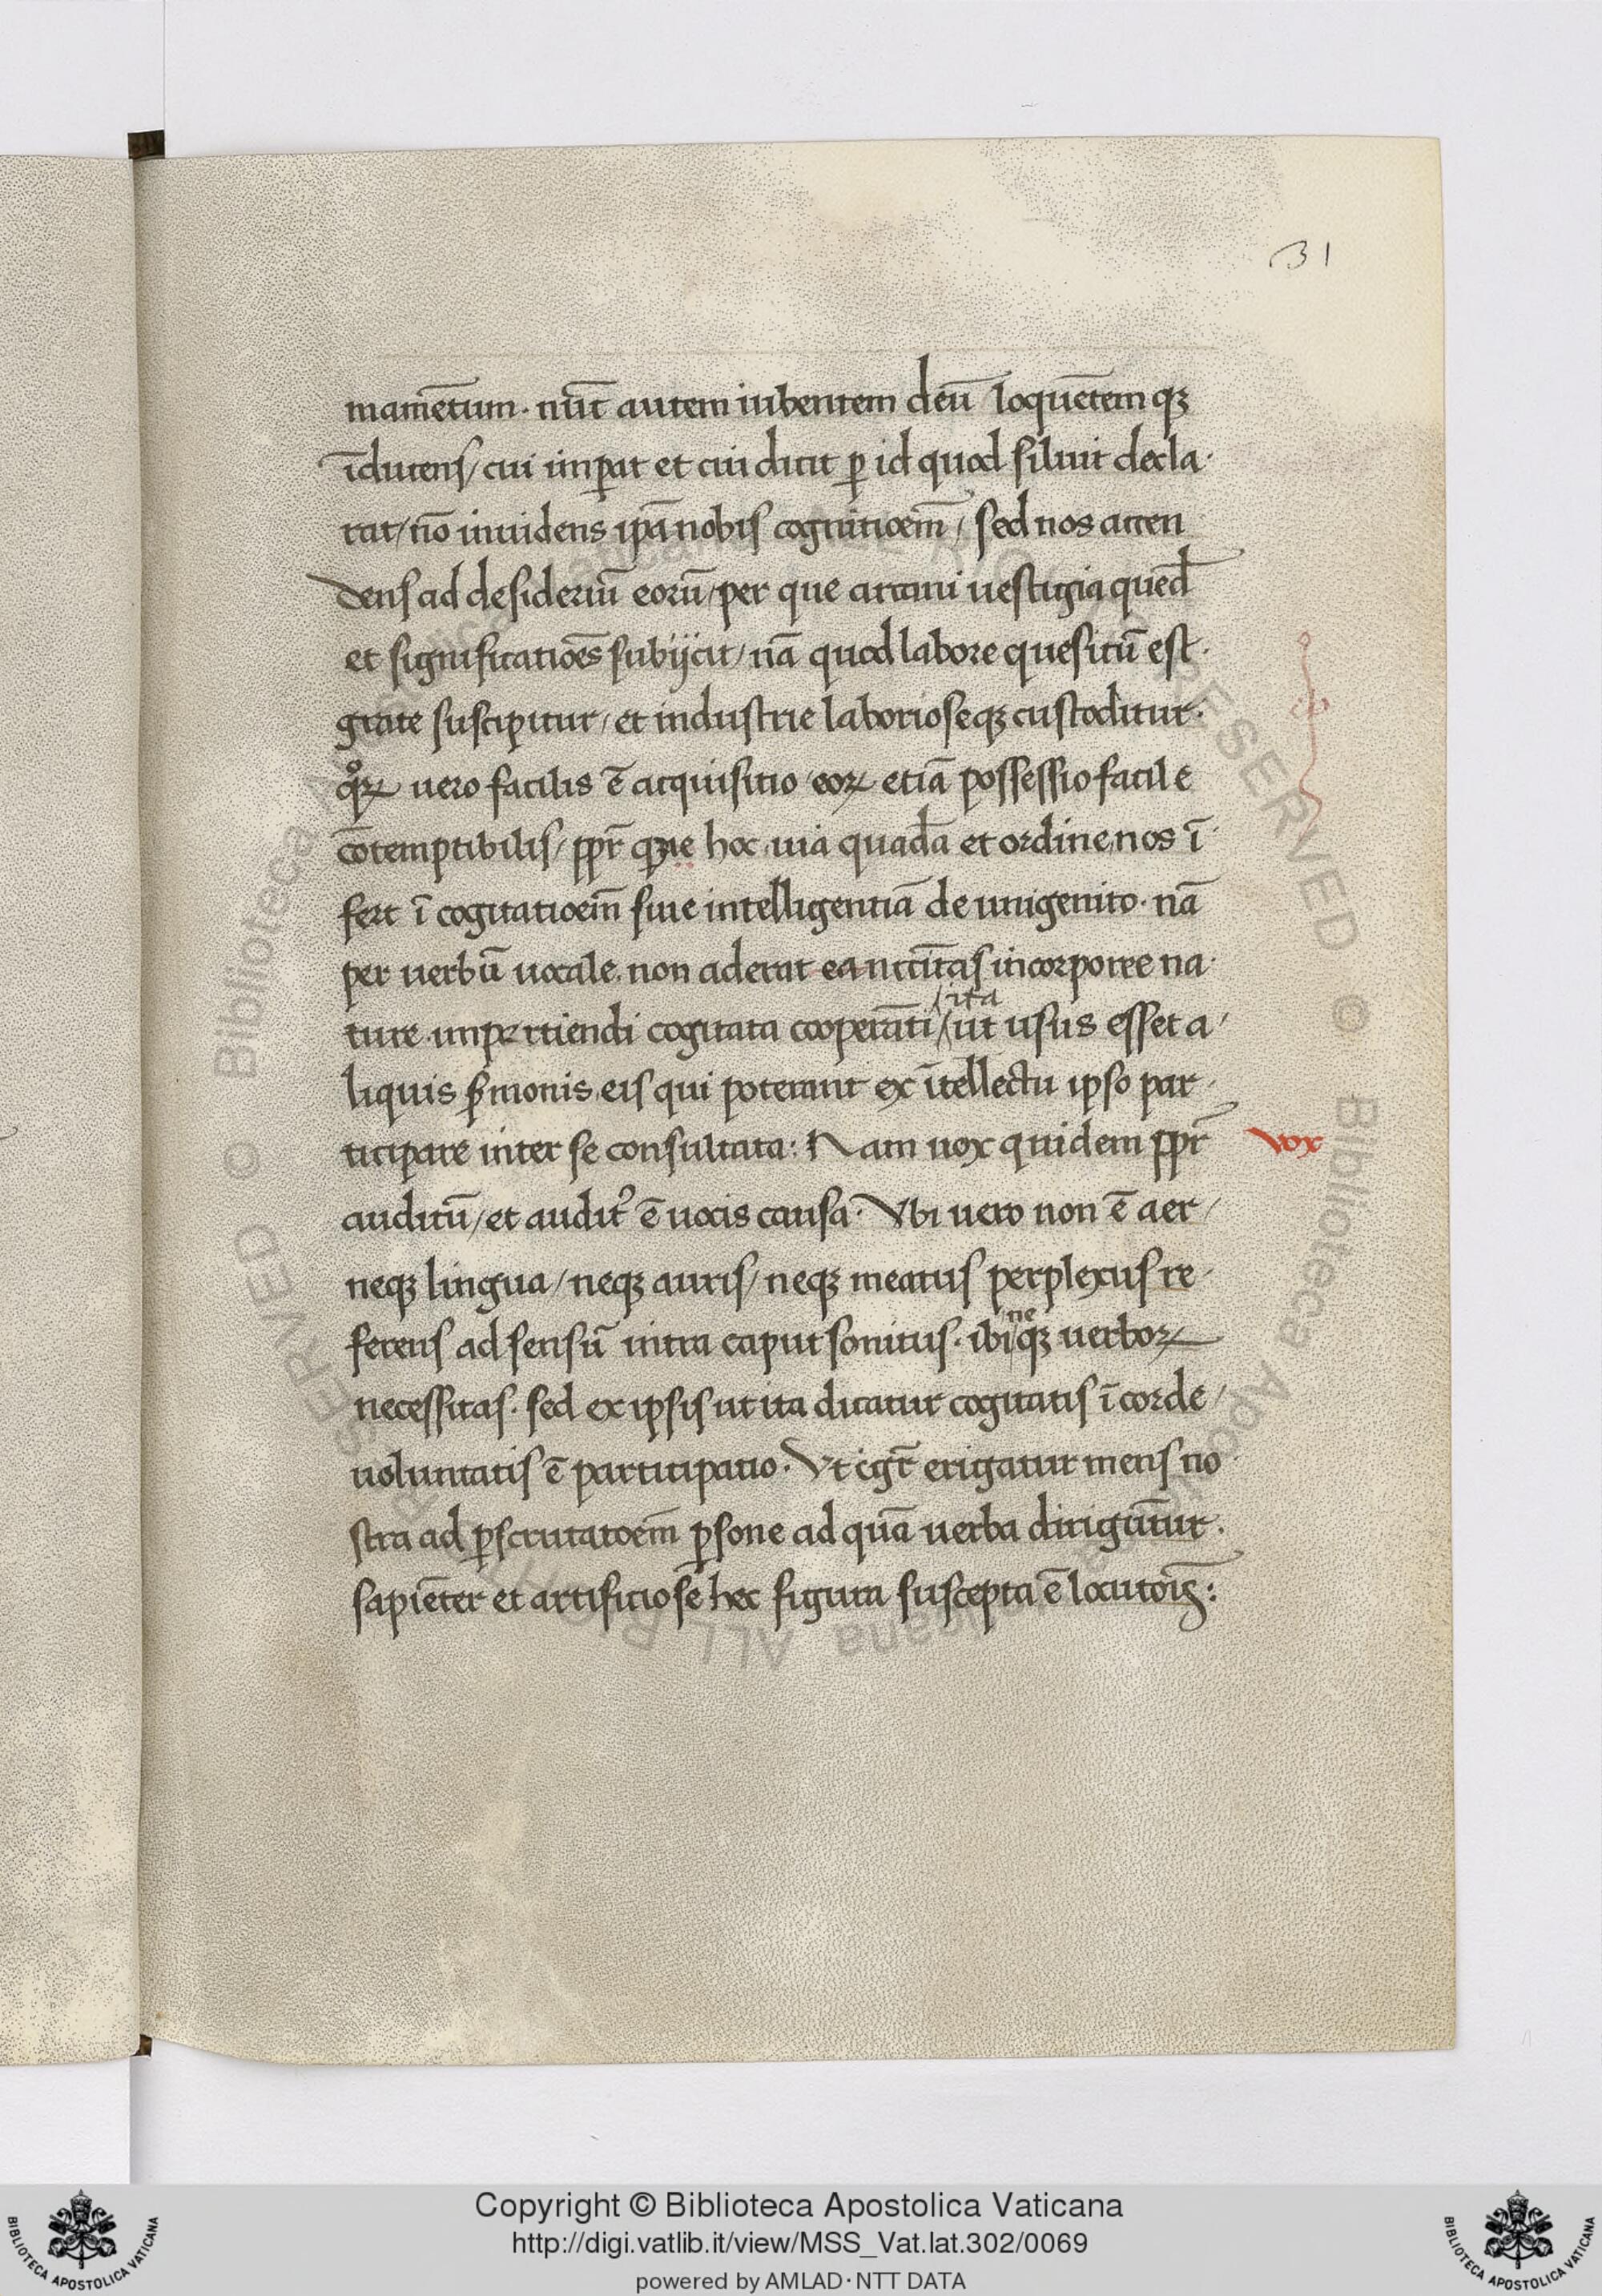 31
mamētum. nūc autem iubentem deū loquētem qꝫ
īducens/ cui imꝑat et cui dicit ꝑ id quod siluit decla
rat/ nō inuidens ipā nobis cognitioem̄/ sed nos accen
dens ad desideriū eorū/ per que arcani uestigia queđ
et significatioēs subijcit/ nā quod labore quesitū est
grate suscipitur/ et industrie laborioseqꝫ custoditur.
qͦꝝ uero facilis ē acquisitio eoꝝ etiā possessio facile
cōtemptibilis/ ꝓpr̄ hoc uia quadā et ordine nos ī
fert ī cogitatioem̄ siue intelligentiā de unigenito. nā
per uerbū uocale non aderat ea nccītas incorporee na
ture impertiendi cogitata cooperāti/ ita ut usus esset a
liquis s̄monis eis qui poterant ex ītellectu ipso par
ticipare inter se consultata: Nam uox quidem ꝓpr̄
vox
auditū/ et auditꝰ ē uocis causa. Vbi uero non ē aer/
neqꝫ lingua/ neqꝫ auris/ neqꝫ meatus perplexus re
ferens ad sensū intra caput sonitus. ibi neqꝫ uerboꝝ
necessitas. sed ex ipsis ut ita dicatur cogitatis ī corde/
uoluntatis ē participatio. Vt igr̄ erigatur mens no
stra ad ꝑscrutatoem̄ ꝑsone ad quā uerba dirigūtur.
sapiēter et artificiose hec figura suscepta ē locutoīs:
Copyright © Biblioteca Apostolica Vaticana
http://digi.vatlib.it/view/MSS_Vat.lat.302/0069
powered by AMLAD·NTT DATA
BIBLIOTECA APOSTOLICA VATICANA
BIBLIOTECA APOSTOLICA VATICANA